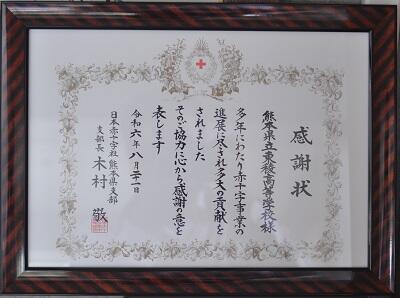 感謝状
熊本県立東稜高等学校様
多年にわたり赤十字事業の
進展に尽され多大の貢献を
されました
そのご協力に心から感謝の意を
表します
令和六年八月二十一日
日本赤十字社熊本県支部
支部長 木村 敬